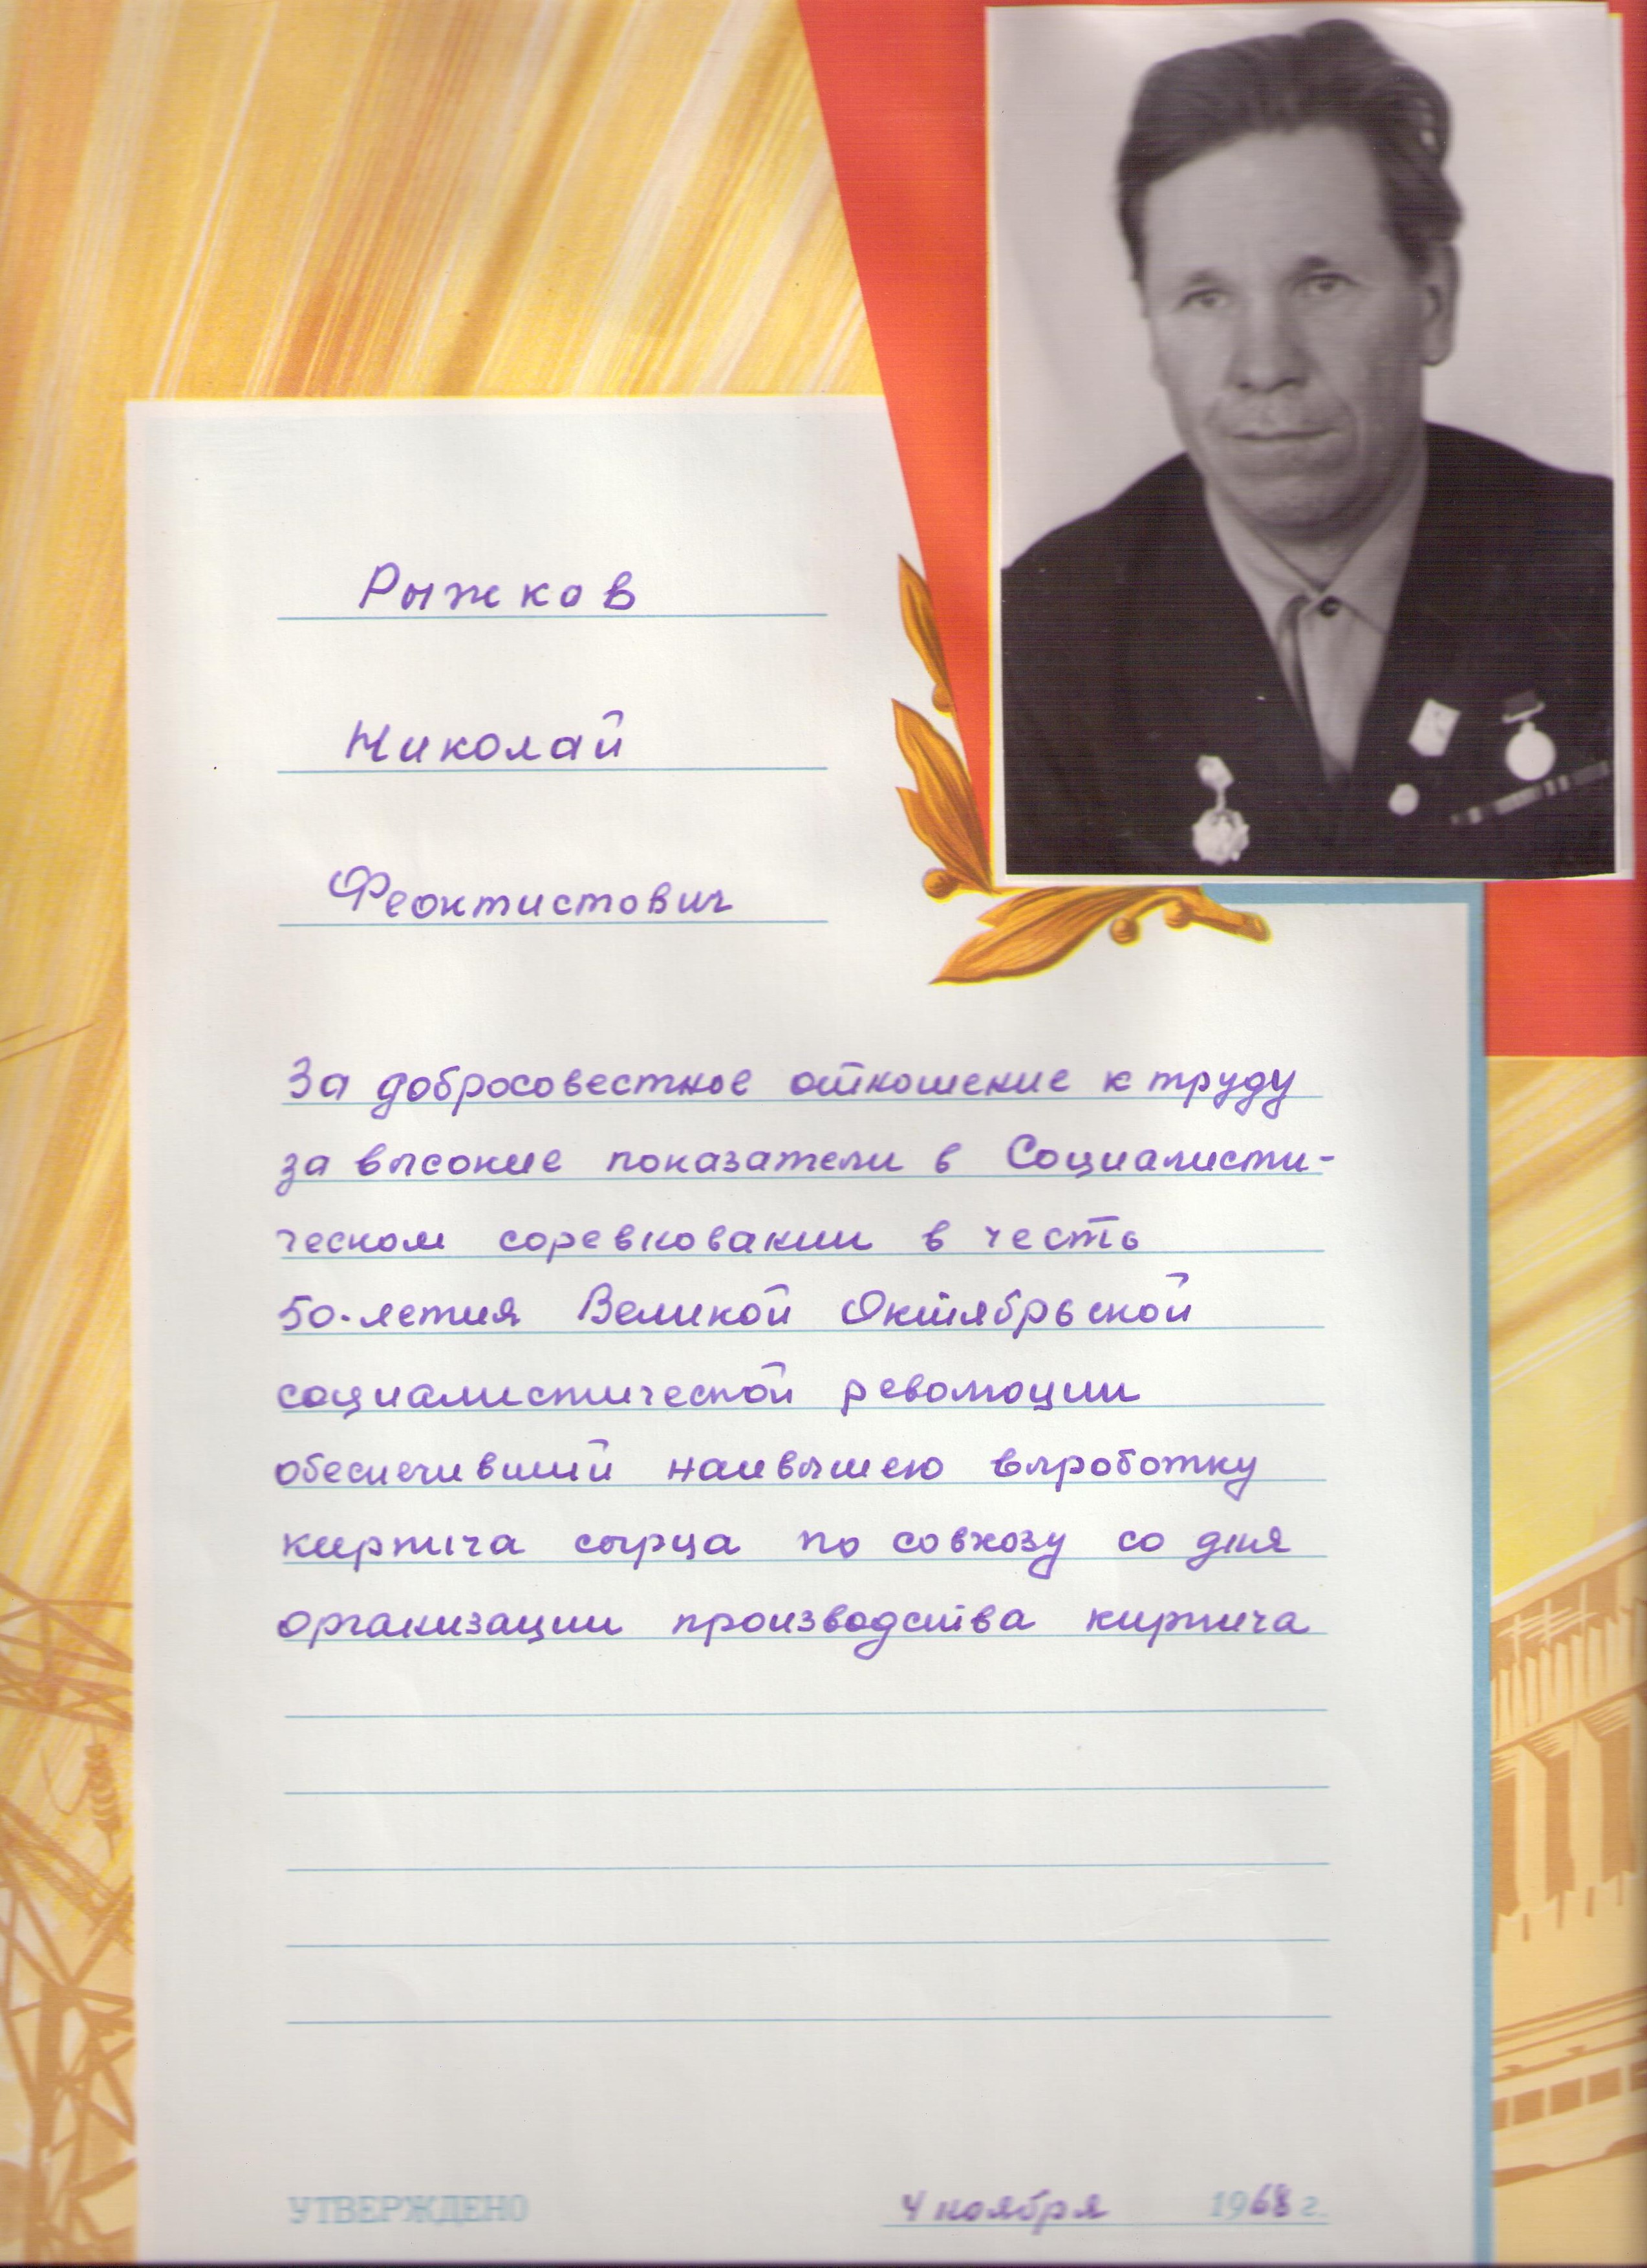 Рыжков
Николай
Феоктистович
За добросовестное отношение к труду
за высокие показатели в Социалисти-
ческом соревновании в честь
50-летия Великой Октябрьской
социалистической революции
обеспечивший наивышею выроботку
кирпича сырца по совхозу со дня
организации производства кирпича
УТВЕРЖДЕНО 4 ноября 1968 г.